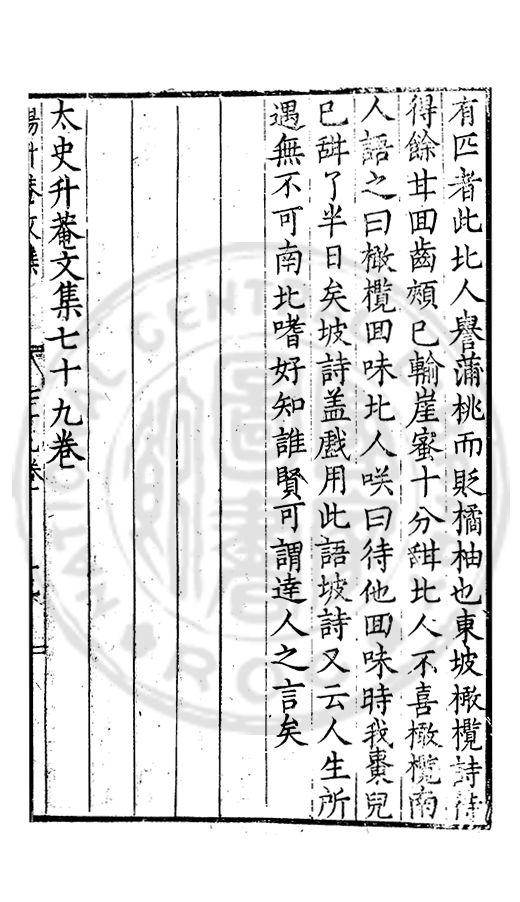 有匹者此比人譽蒲桃而貶橘柚也東坡橄欖詩待
得餘甘囬齒頰巳輸崖蜜十分甜比人不喜橄欖南
人語之曰橄欖囬味比人咲曰待他囬味時我棗兒
巳甜了半日矣坡詩盖戲用此語坡詩又云人生所
遇無不可南北嗜好知誰賢可謂達人之言矣
太史升菴文集七十九卷
楊升菴文集 七十九卷
NATIONAL CENTRAL